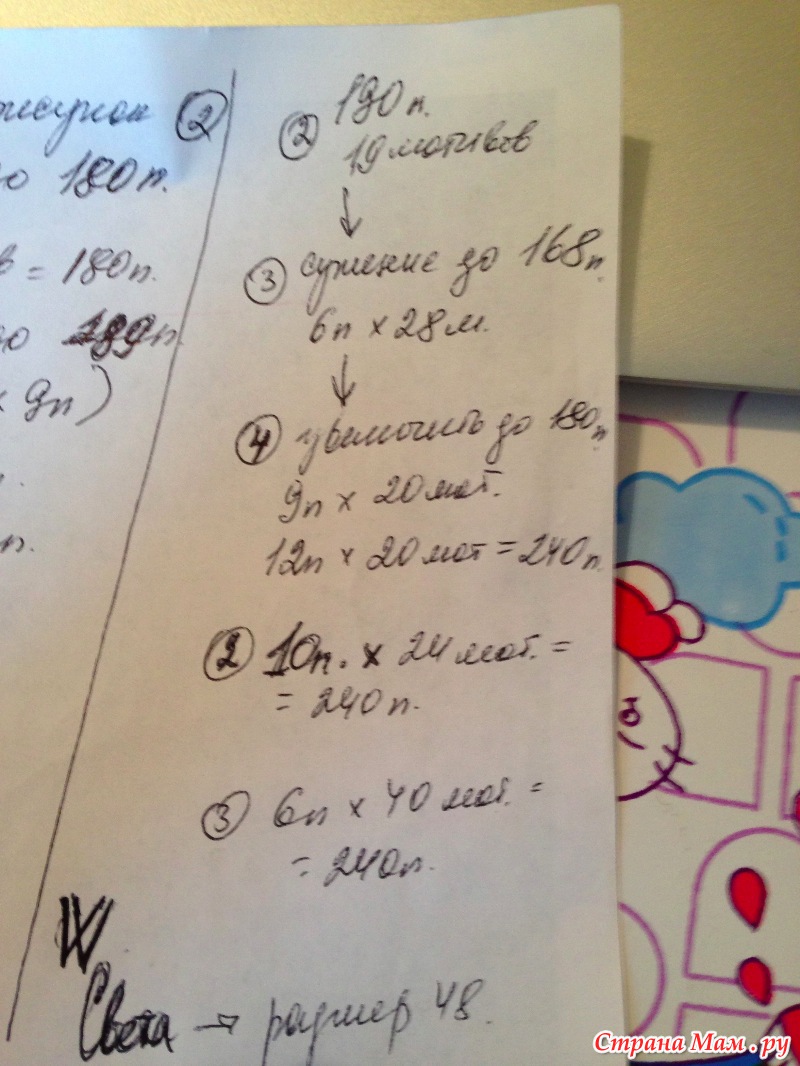 рисунок ②
до 180п.
в = 180п.
до 199п.
х 9п)
п.
② 190п.
19 мотивов
↓
③ сужение до 168п.
6п х 28м.
↓
④ увеличить до 180п
9п х 20 мот.
12п х 20 мот = 240п.
② 10п. х 24 мот. =
= 240п.
③ 6п х 40 мот. =
= 240п.
W
Света → размер 48.
Страна Мам.ру